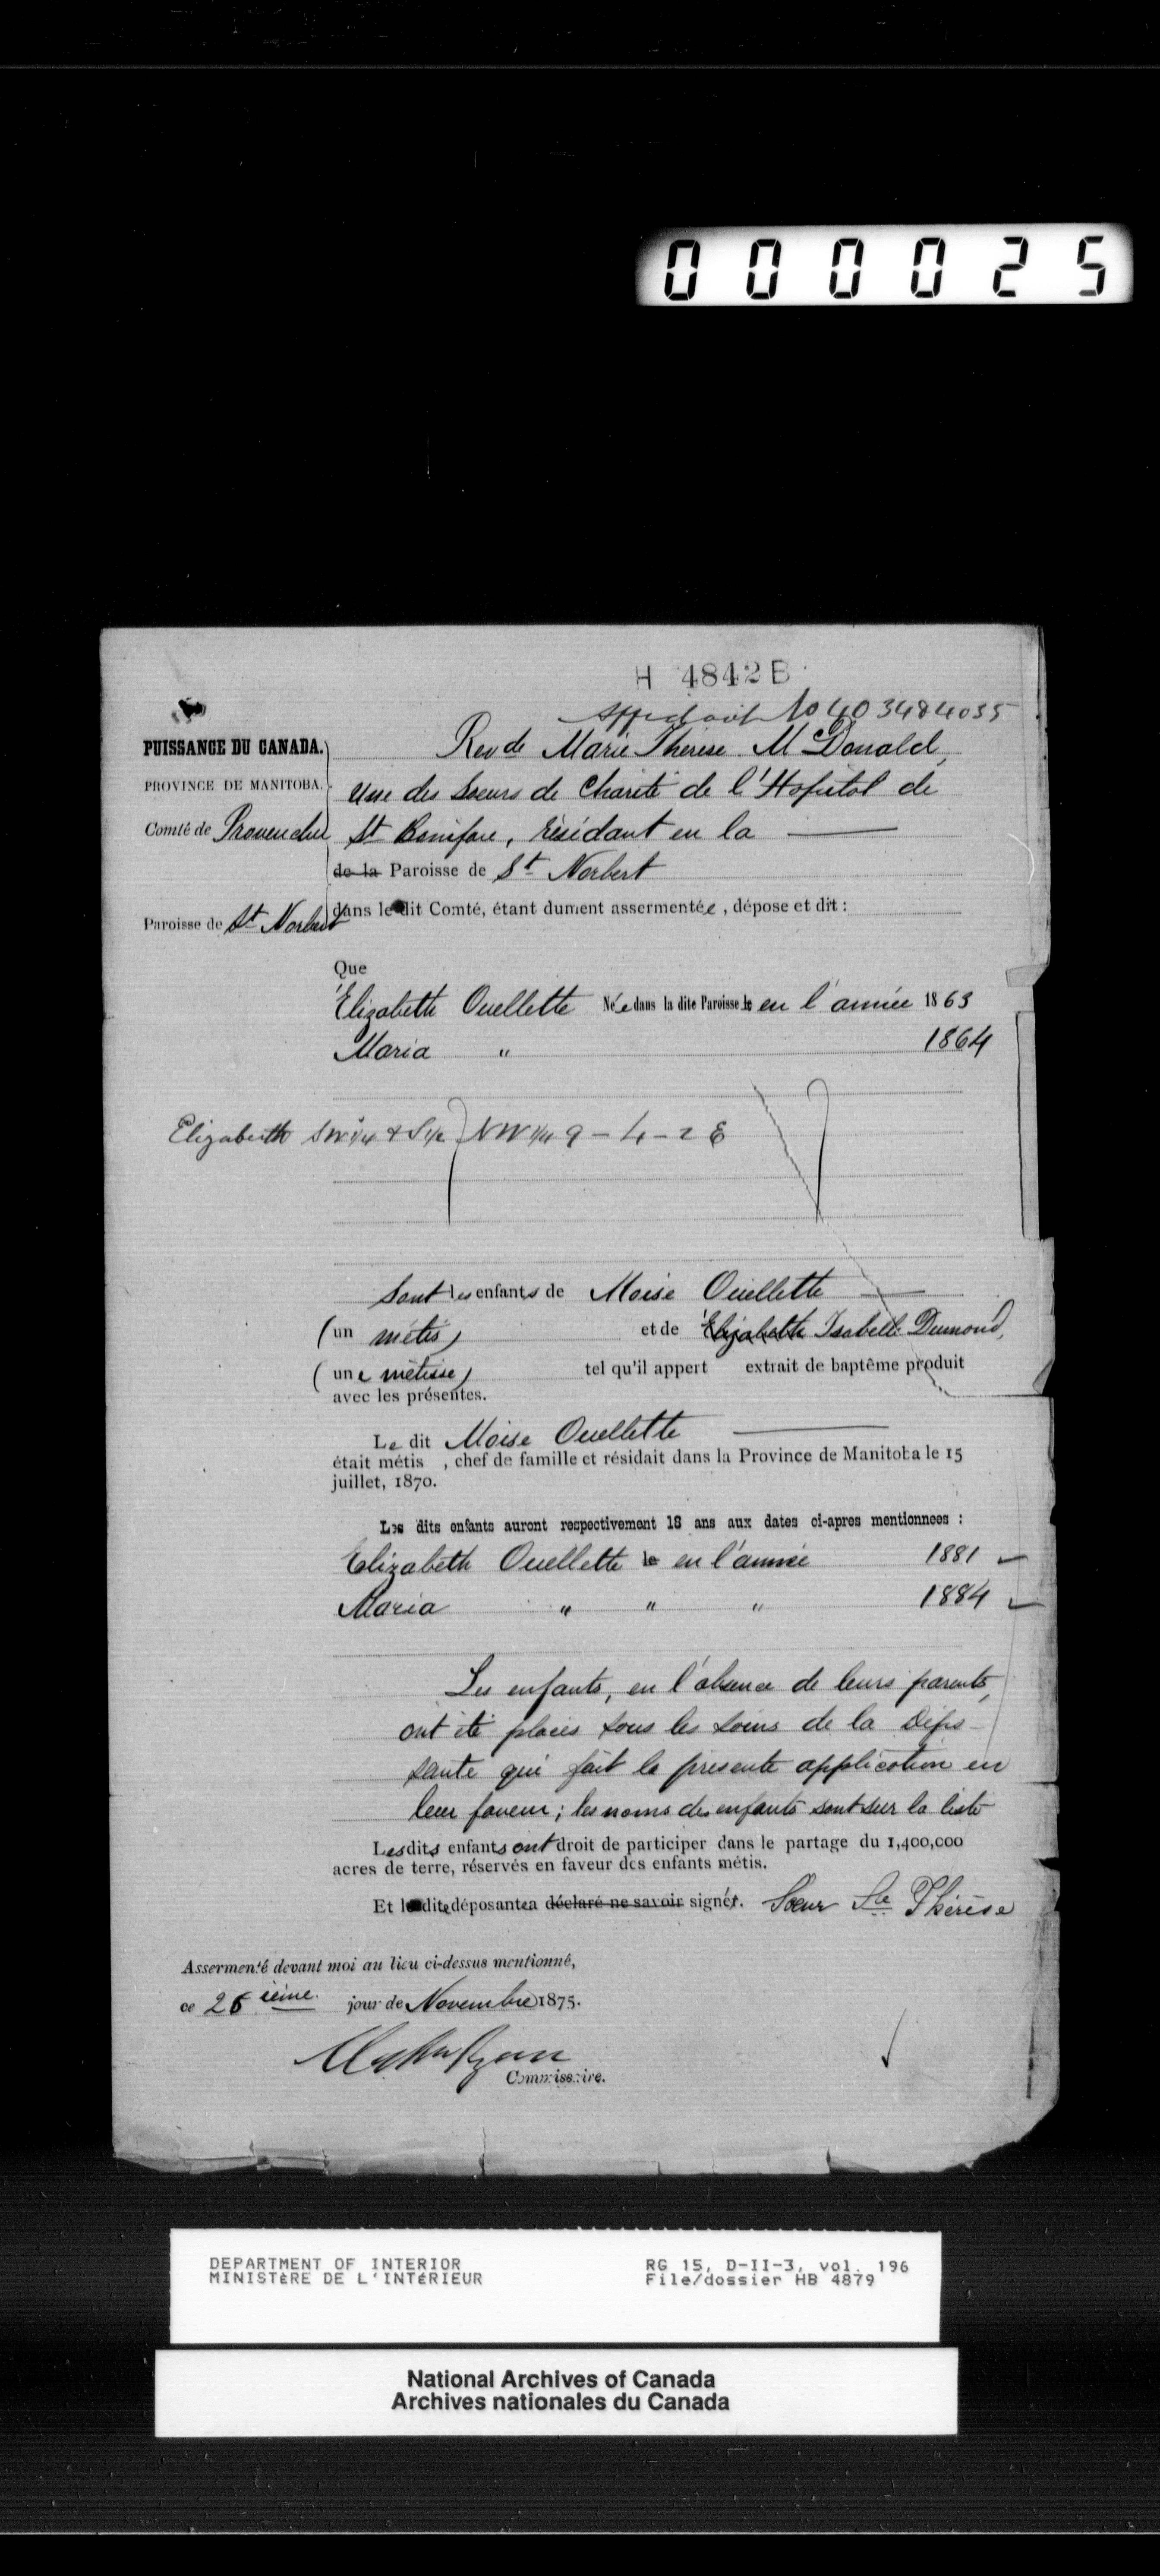 000025
H 4842 B
Affidavit No 4034 & 4035
PUISSANCE DU CANADA.
Revde Marie Thérèse McDonald,
PROVINCE DE MANITOBA.
Une des Soeurs de Charité de l'Hopital de
Comté de Provencher
St Boniface, résidant en la
de la Paroisse de St Norbert
Paroisse de St Norbert
dans le dit Comté, étant dument assermentée, dépose et dit :
Que
Elizabeth Ouellette Née dans la dite Paroisse le en l'année 1863
Maria " 1864
Elizabeth SW 1/4 & S 1/2 NW 1/4 9-4-2 E
Sont les enfants de Moise Ouellette
(un métis) et de Elizabeth Isabelle Dumond,
(une métisse) tel qu'il appert extrait de baptême produit
avec les présentes.
Le dit Moise Ouellette
était métis , chef de famille et résidait dans la Province de Manitoba le 15
juillet, 1870.
Les dits enfants auront respectivement 18 ans aux dates ci-apres mentionnees :
Elizabeth Ouellette le en l'année 1881
Maria " " " 1884
Les enfants, en l'absence de leurs parents,
ont été placés sous les soins de la dépo-
sante qui fait la présente application en
leur faveur; les noms des enfants sont sur la liste
Lesdits enfants ont droit de participer dans le partage du 1,400,000
acres de terre, réservés en faveur des enfants métis.
Et la dite déposante a déclaré ne savoir signér. Soeur Ste Thérèse
Assermenté devant moi au lieu ci-dessus mentionné,
ce 26ième jour de Novembre 1875.
Ryan
Commissaire.
DEPARTMENT OF INTERIOR
MINISTÈRE DE L'INTÉRIEUR
RG 15, D-II-3, vol. 196
File/dossier HB 4879
National Archives of Canada
Archives nationales du Canada